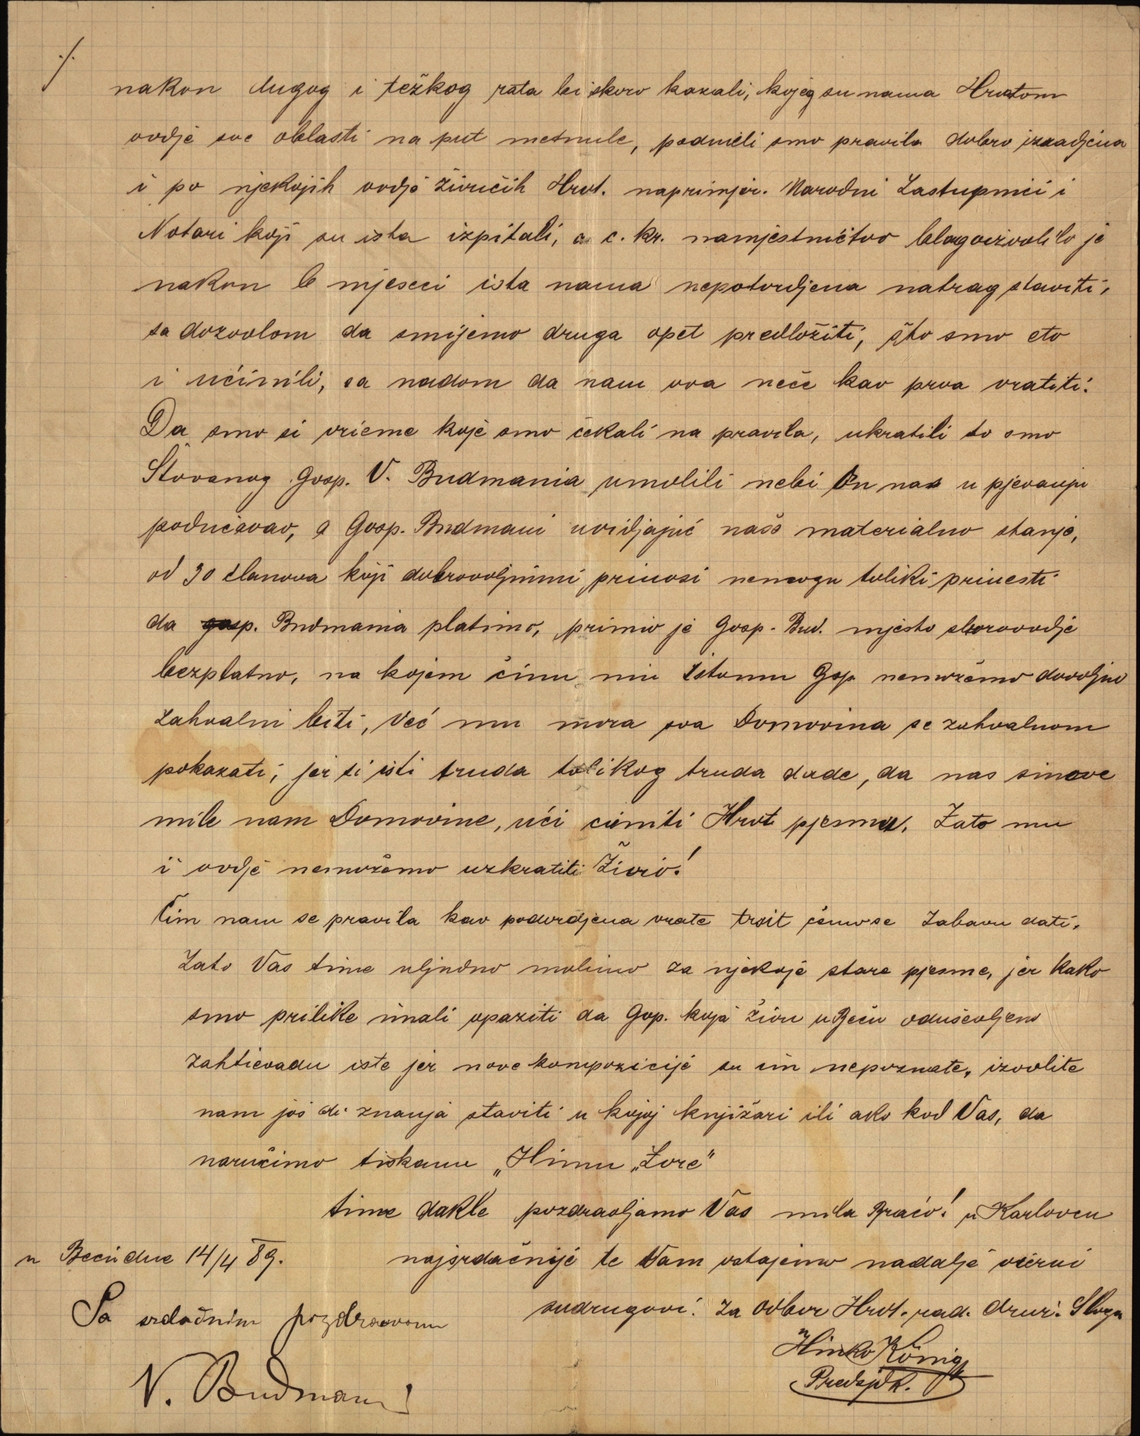 ·/.
nakon dugog i težkog rata bi skoro kazali, kojeg su nama Hrvatom
ovdje sve oblasti na put metnule, podnieli smo pravila dobro izradjena
i po njekojih ovdje živućih Hrvt. naprimjer. Narodni Zastupnici i
Notari koji su ista izpitali, a c. kr. namjestničtvo blagoizvolilo je
nakon 6 mjeseci ista nama nepotvrdjena natrag staviti,
sa dozvolom da smijemo druga opet predložiti, što smo eto
i učinili, sa nadom da nam ova neće kao prva vratiti.
Da smo si vrieme koje smo čekali na pravila, ukratili to smo
Štovanog Gosp. V. Budmania umolili nebi On nas u pjevanju
podučavao, a Gosp. Budmani uvidjajuć naše materialno stanje,
od 30 članova koji dobrovoljnimi prinosi nemogu toliki prinesti
da gosp. Budmania platimo, primio je Gosp. Bud. mjesto zborovodje
bezplatno, na kojem činu mu istomu Gosp nemožemo dovoljno
zahvalni biti, već mu mora sva Domovina se zahvalnom
pokazati, jer si isti truda tolikog truda dade, da nas sinove
mile nam Domovine, uči cieniti Hrvt pjesmu. Zato mu
i ovdje nemožemo uzkratiti Živio!
Čim nam se pravila kao podvrdjena vrate ćemo se zabavu dati,
Zato Vas time uljudno molimo za njekoje stare pjesme, jer kako
smo prilike imali opaziti da Gosp. koja živu u Beču oduševljeno
zahtievadu iste jer nove kompozicije su im nepoznate, izvolite
nam još do znanja staviti u kojoj knjižari ili ako kod Vas, da
naručimo tiskanu „Himnu „Zore"
time dakle pozdravljamo Vas mila Braćo! u Karlovcu
u Beču dne 14/4 89. najsrdačnije te Vam ostajemo nadalje vierni
sudrugovi. Za odbor Hrvt. rad. druž. Sloga
Sa srdačnim pozdravom
Hinko König
Predsjdk.
V. Budmani